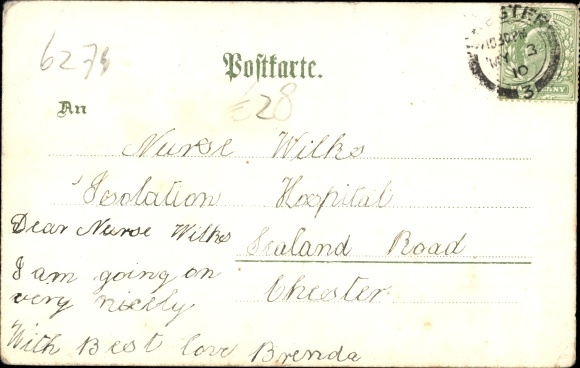 627
Postkarte.
An
28
Nurse Wilks
Isolation Hospital
Sealand Road
Chester
Dear Nurse Wilks
I am going on
very nicely
With Best love Brenda
10 30 PM
MY 3
10
3